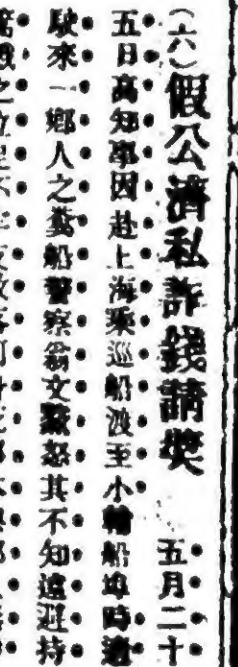 （六）假公濟私詐錢請奬　五月二十
五日高知事因赴上海乘巡船渡至小輪船埠時適
駛來一鄉人之糞船警察翁文毅怒其不知遠避持